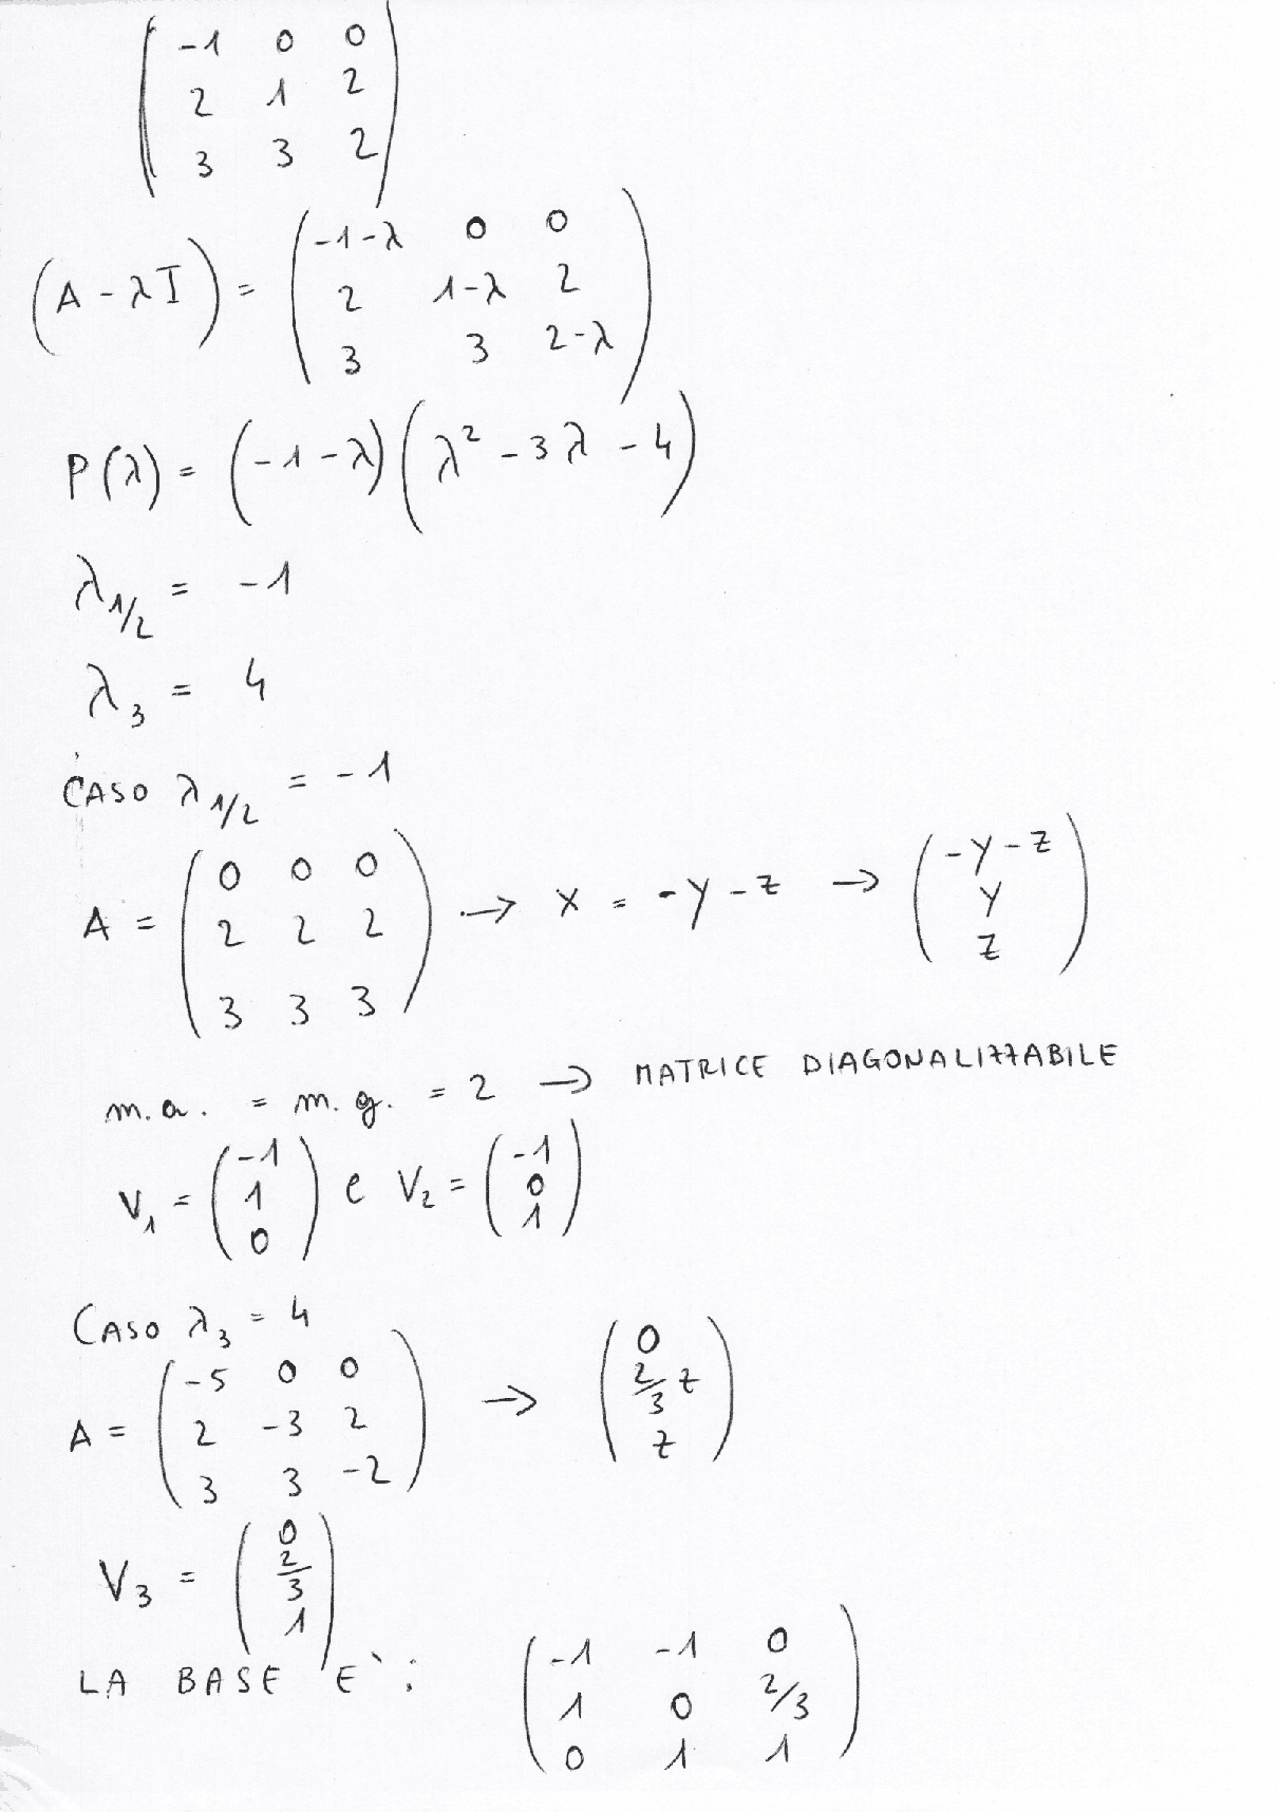 -1 0 0
2 1 2
3 3 2
(A - λI) = ( -1-λ 0 0
2 1-λ 2
3 3 2-λ )
P(λ) = (-1-λ)(λ² - 3λ - 4)
λ1/2 = -1
λ3 = 4
CASO λ1/2 = -1
A = ( 0 0 0
2 2 2
3 3 3 ) → x = -y - z → ( -y-z
y
z )
m.a. = m.g. = 2 → MATRICE DIAGONALIZZABILE
V1 = ( -1
1
0 ) e V2 = ( -1
0
1 )
CASO λ3 = 4
A = ( -5 0 0
2 -3 2
3 3 -2 ) → ( 0
2/3 z
z )
V3 = ( 0
2/3
1 )
LA BASE E` : ( -1 -1 0
1 0 2/3
0 1 1 )